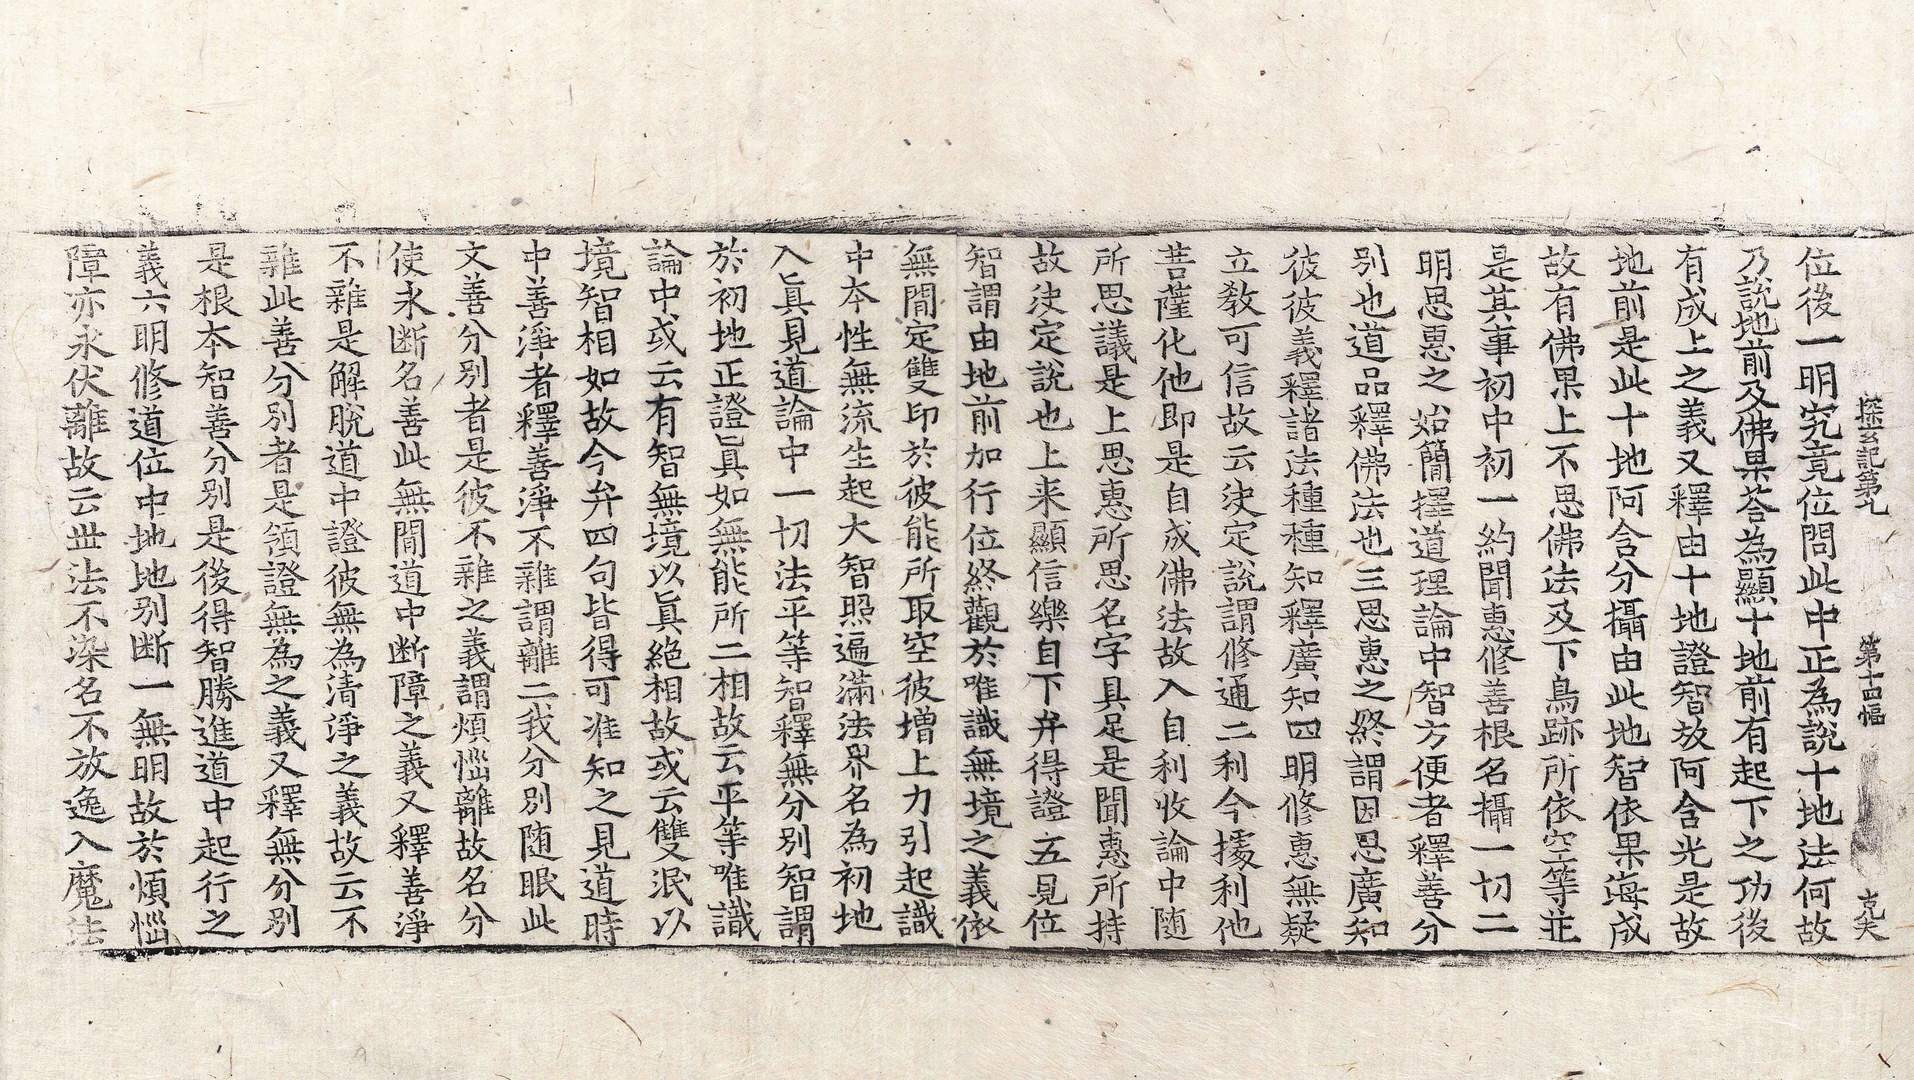 探玄記第九　第十四幅　克夫
位後一明究竟位問此中正為說十地法何故
乃說地前及佛果荅為顯十地前有起下之功後
有成上之義又釋由十地證智故阿含光是故
地前是此十地阿含分攝由此地智依果海成
故有佛果上不思佛法及下鳥跡所依空等並
是其事初中初一約聞惠修善根名攝一切二
明思惠之始簡擇道理論中智方便者釋善分
別也道品釋佛法也三思惠之終謂因思廣知
彼彼義釋諸法種種知釋廣知四明修惠無疑
立教可信故云决定說謂修通二利今據利他
菩薩化他即是自成佛法故入自利收論中随
所思議是上思惠所思名字具足是聞惠所持
故决定說也上来顯信樂自下弁得證五見位
智謂由地前加行位終觀於唯識無境之義依
無閒定雙印於彼能所取空彼增上力引起識
中夲性無流生起大智照遍滿法界名為初地
入眞見道論中一切法平等智釋無分別智謂
於初地正證眞如無能所二相故云平等唯識
論中或云有智無境以眞絕相故或云雙泯以
境智相如故今弁四句皆得可准知之見道時
中善淨者釋善淨不雜謂離二我分別随眠此
文善分別者是彼不雜之義謂煩惱離故名分
使永断名善此無閒道中断障之義又釋善淨
不雜是解脫道中證彼無為清淨之義故云不
雜此善分別者是領證無為之義又釋無分別
是根夲智善分別是後得智勝進道中起行之
義六明修道位中地地別断一無明故於煩惱
障亦永伏離故云世法不染名不放逸入魔法